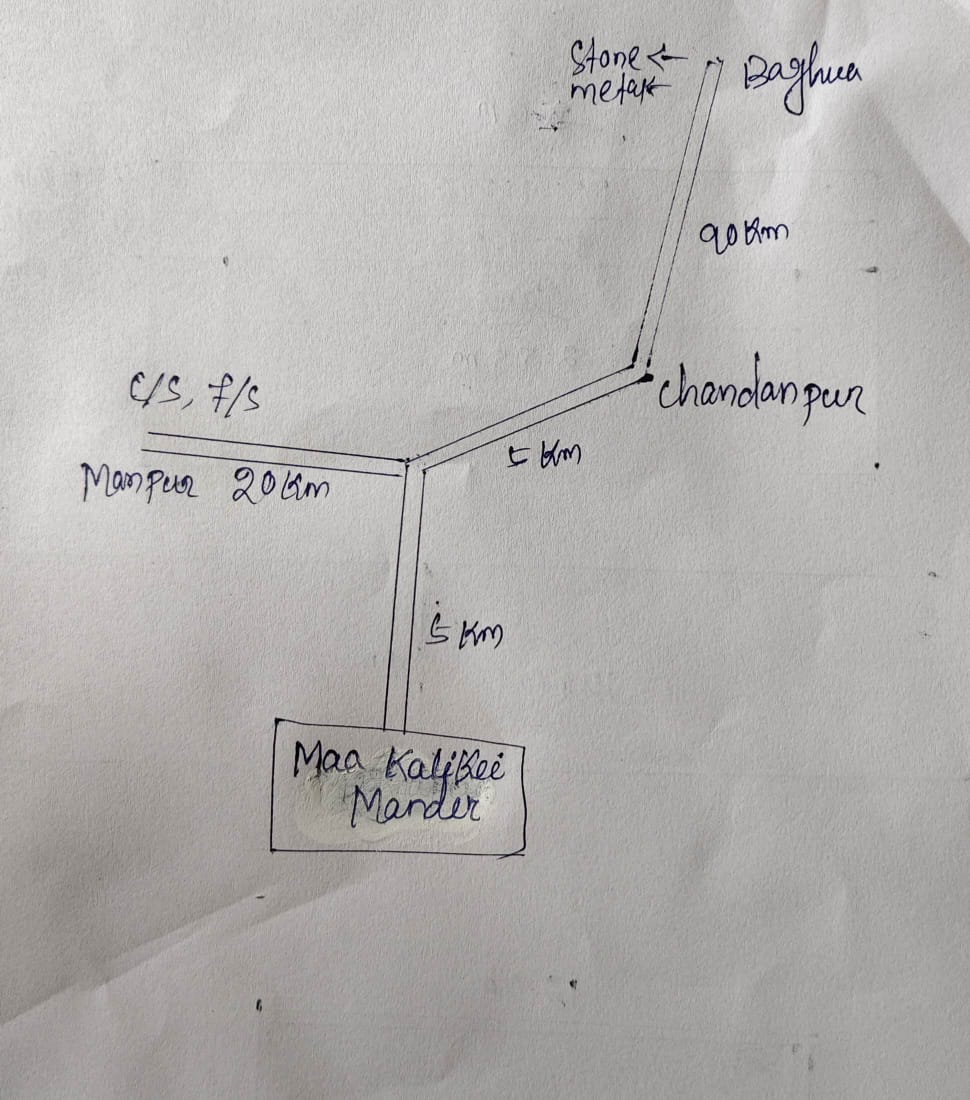 Stone ←
metal ←
Baghua
90 Km
C/S, F/S
Chandanpur
5 Km
Manpur 20 Km
5 Km
Maa Kalikei
Mander